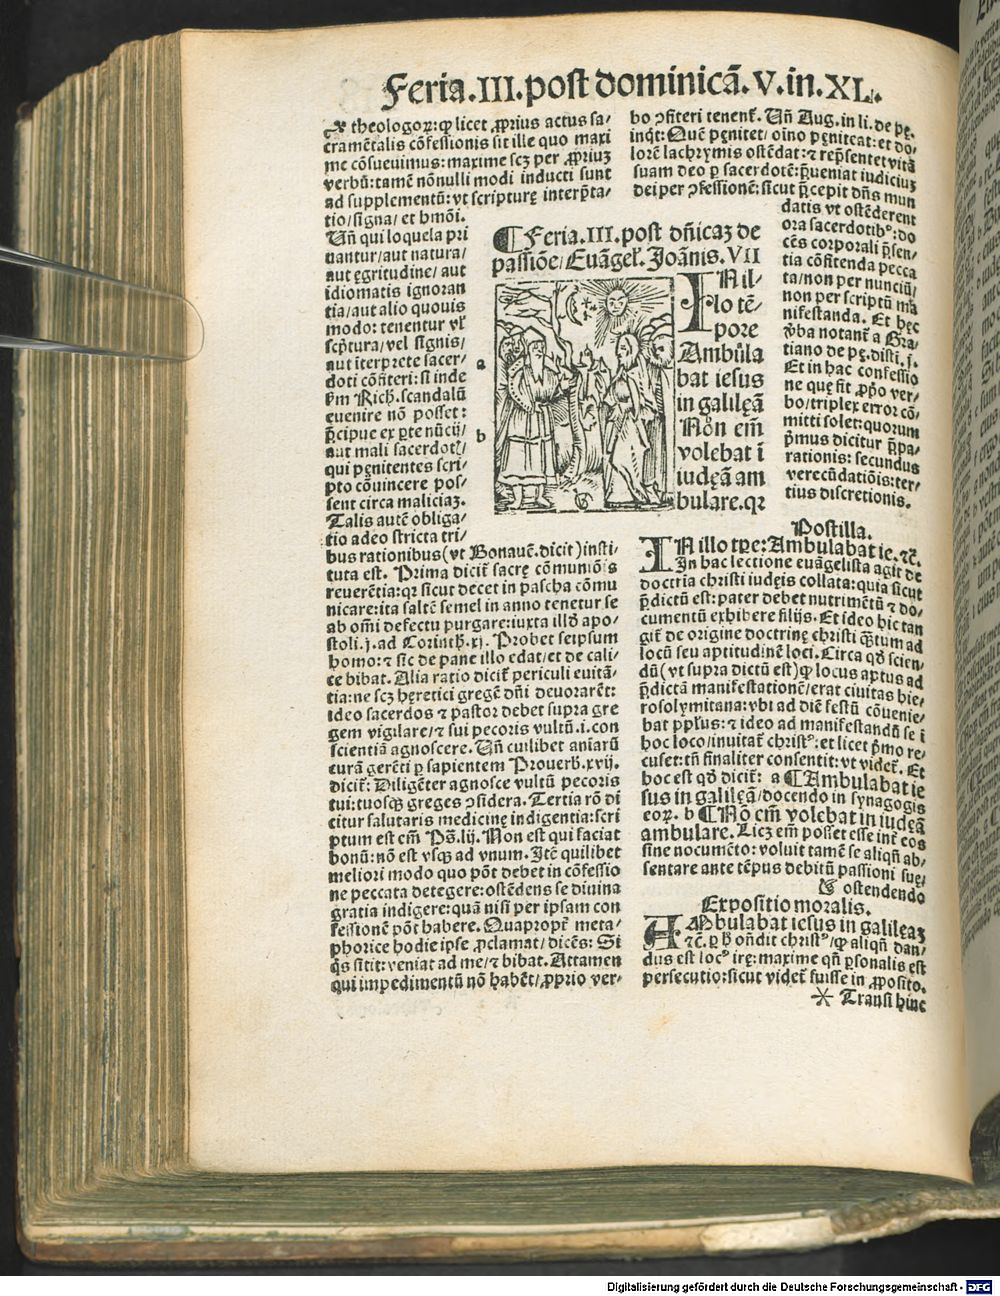 Feria.III.post dominicā.V.in.XL.
theologoꝝ:ꝙ licet ꝓprius actus sa-
cramētalis cōfessionis sit ille quo maxi
me cōsueuimus:maxime scꝫ per ꝓpriuꝫ
verbū:tamē nōnulli modi inducti sunt
ad supplementū:vt scripturę interp̄ta-
tio/signa/et hmōi.
Uñ qui loquela pri
uantur/aut natura/
aut ęgritudine/ aut
idiomatis ignoran
tia/aut alio quouis
modo: tenentur vl̄
scp̄tura/vel signis/
aut īterprete sacer-
doti cōfiteri:si inde
ẜm Rich.scandalū
euenire nō posset:
p̄cipue ex ꝑte nūcij/
aut mali sacerdotꝭ/
qui pęnitentes scri-
pto cōuincere pos-
sent circa maliciaꝫ.
Talis autē obliga-
tio adeo stricta tri-
bus rationibus(vt Bonauē.dicit)insti-
tuta est. Prima dicit̄ sacrę cōmuniōis
reuerētia:qꝛ sicut decet in pascha cōmu
nicare:ita saltē semel in anno tenetur se
ab om̄i defectu purgare:iuxta illd̄ apo-
stoli.j.ad Corinth.xj. Probet seipsum
homo:⁊ sic de pane illo edat/et de cali-
ce bibat. Alia ratio dicit̄ periculi euitā-
tia:ne scꝫ hęretici gregē dn̄i deuorarēt:
ideo sacerdos ⁊ pastor debet supra gre
gem vigilare/⁊ sui pecoris vultū.i.con
scientiā agnoscere. Uñ cuilibet aniarū
curā gerēti ꝑ sapientem Prouerb.xvij.
dicit̄: Diligēter agnosce vultū pecoris
tui:tuosqꝫ greges ↄsidera. Tertia rō di
citur salutaris medicinę indigentia:scri
ptum est em̄ Ps̄.lij. Non est qui faciat
bonū:nō est vsqꝫ ad vnum. Itē quilibet
meliori modo quo pōt debet in cōfessio
ne peccata detegere:ostēdens se diuina
gratia indigere:quā nisi per ipsam con
fessionē pōt habere. Quapropt̄ meta-
phorice hodie ipse ꝓclamat/ dicēs: Si
q̄s sitit:veniat ad me/⁊ bibat. Attamen
qui impedimentū nō habēt/ꝓprio ver-
bo ↄfiteri tenent̄. Uñ Aug.in li.de pę.
inq̄t: Quē pęnitet/ oīno pęniteat:et do-
lorē lachrymis ostēdat:⁊ rep̄sentet vitā
suam deo ꝑ sacerdotē:p̄ueniat iudiciuꝫ
dei per ↄfessionē:sicut p̄cepit dn̄s mun
datis vt ostēderent
ora sacerdotibꝰ:do
cēs corporali p̄sen-
tia cōfitenda pecca
ta/non per nunciū/
non per scriptū ma
nifestanda. Et hęc
v̄ba notant̄ a Gra-
tiano de pę.disti.j.
Et in hac confessio
ne quę fit ꝓprio ver-
bo/triplex error cō-
mitti solet:quorum
p̄mus dicitur p̄pa-
rationis: secundus
verecūdatiōis:ter-
tius discretionis.
¶Feria.III.post dn̄icaꝫ de
passiōe/Euāgel̄.Joānis.VII
a
b
IN il-
lo tē-
pore
Ambūla
bat iesus
in galilęā
Non em̄
volebat ī
iudęā am
bulare.qꝛ
Postilla.
IN illo tp̄e:Ambulabat ie.⁊c̄.
In hac lectione euāgelista agit de
doctria christi iudęis collata:quia sicut
p̄dictū est:pater debet nutrimētū ⁊ do-
cumentū exhibere filijs. Et ideo hic tan
git̄ de origine doctrinę christi q̄tum ad
locū seu aptitudinē loci. Circa qd̄ scien-
dū(vt supra dictū est)ꝙ locus aptus ad
p̄dictā manifestationē/erat ciuitas hie-
rosolymitana:vbi ad diē festū cōuenie-
bat pp̄l̄us:⁊ ideo ad manifestandū se ī
hoc loco/inuitat̄ christꝰ:et licet p̄mo re-
cuset:tn̄ finaliter consentit:vt videt̄. Et
hoc est qd̄ dicit̄: a ¶Ambulabat ie
sus in galilęā/docendo in synagogis
eoꝝ. b ¶Nō em̄ volebat in iudęā
ambulare. Licꝫ em̄ posset esse int̄ eos
sine nocumēto: voluit tamē se aliqn̄ ab-
sentare ante tēpus debitū passioni suę/
& ostendendo
Expositio moralis.
AMbulabat iesus in galileaꝫ
⁊c̄. ꝑ h̄ on̄dit christꝰ/ꝙ aliqn̄ dan-
dus est locꝰ irę: maxime qn̄ ꝑsonalis est
persecutio:sicut videt̄ fuisse in ꝓposito.
Transi hinc
Digitalisierung gefördert durch die Deutsche Forschungsgemeinschaft - DFG